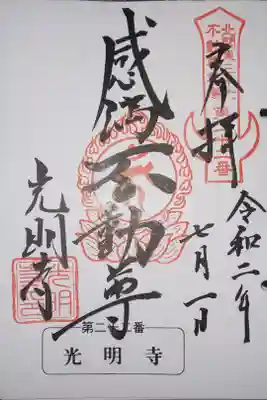 奉拝
令和二年
七月一日
感得不動尊
光明寺
第二十二番
光明寺